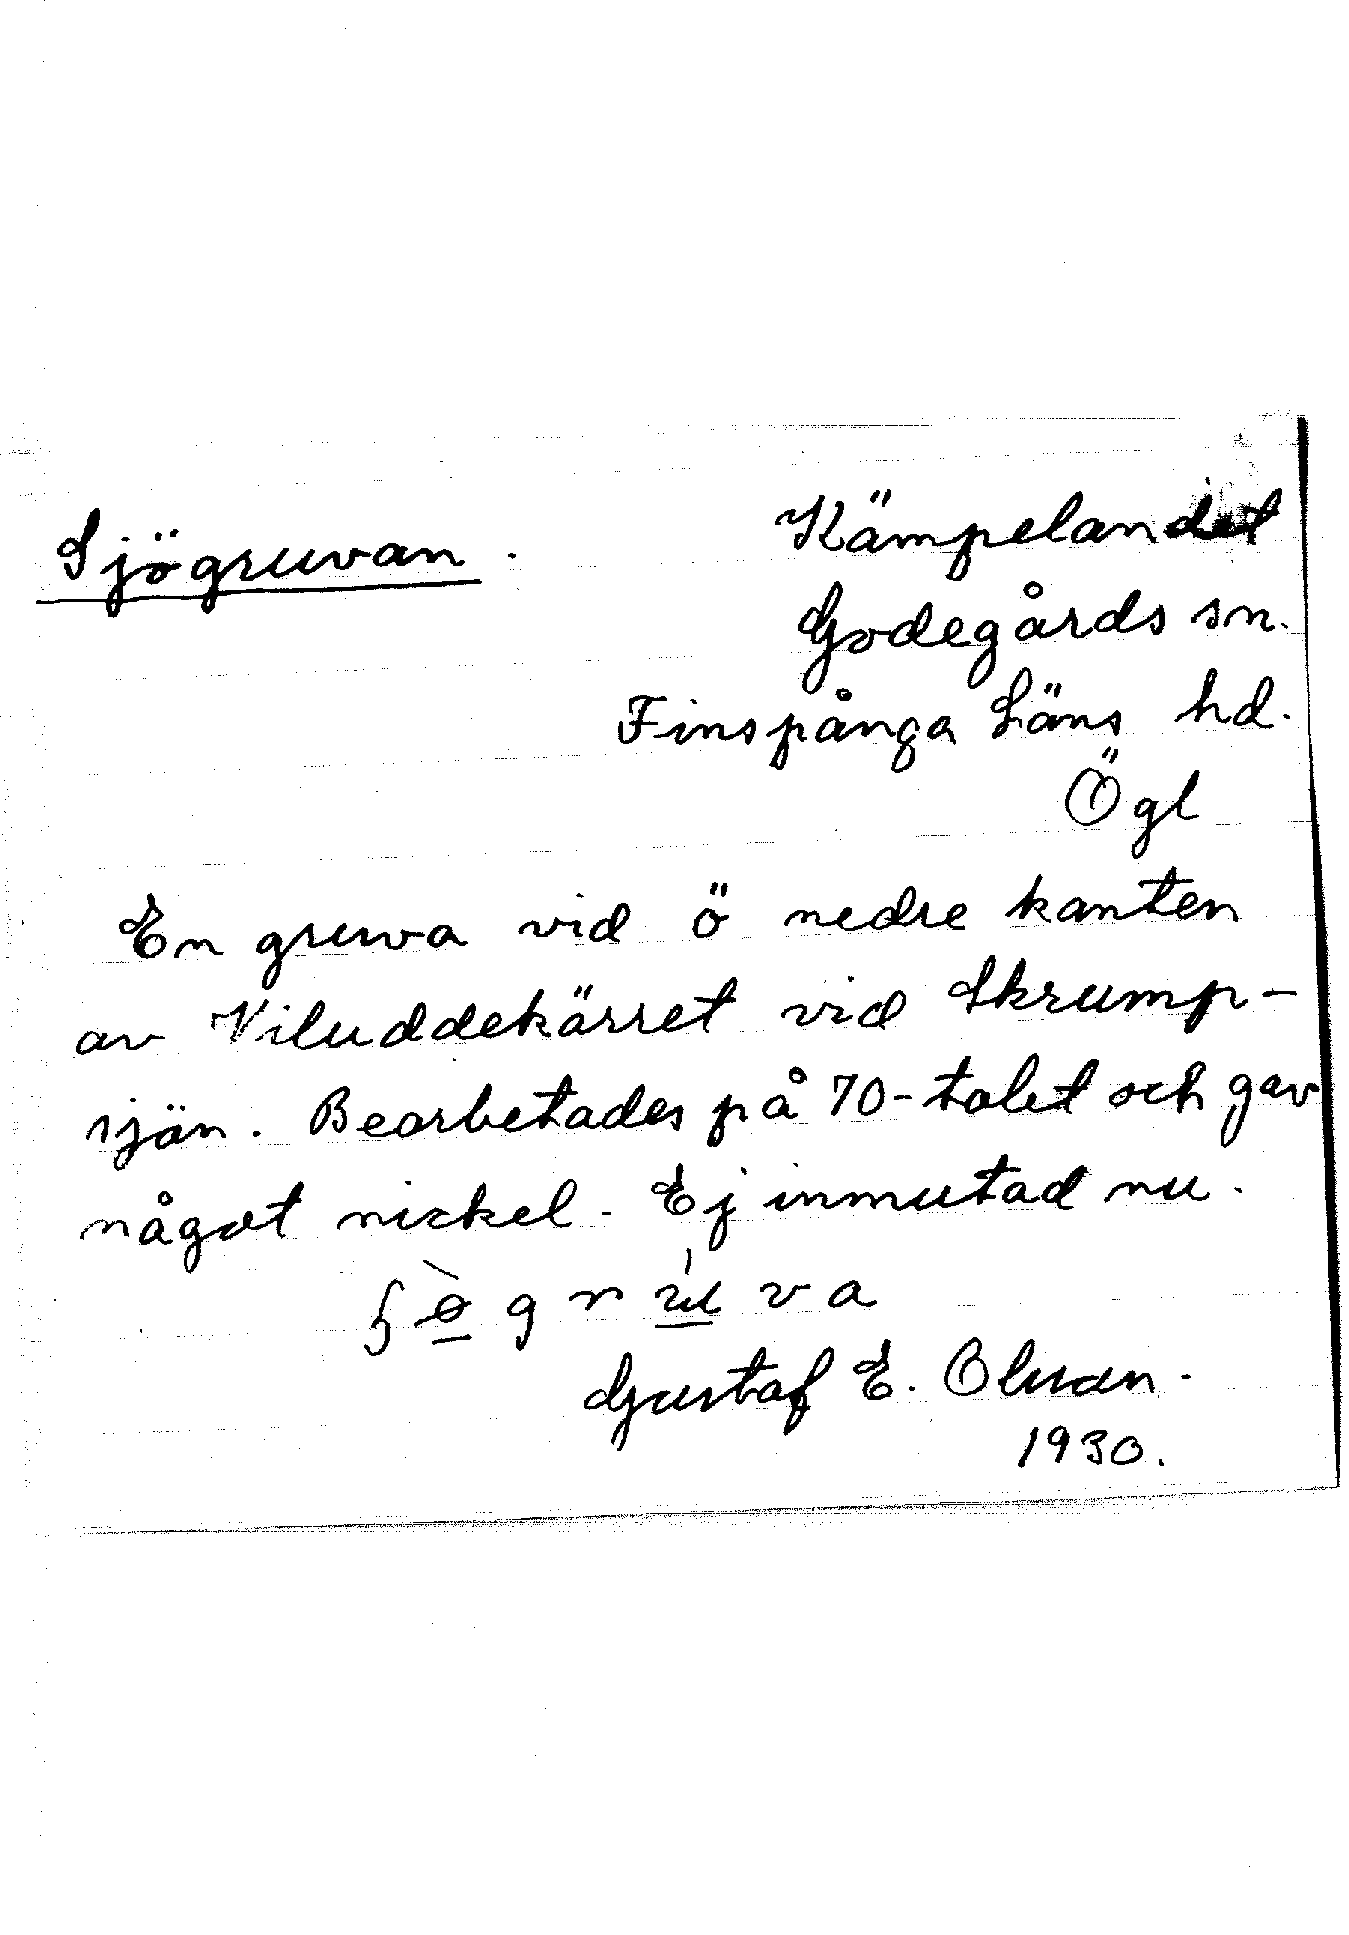 Sjögruvan.
Kämpelandet
Godegårds sn.
Finspånga Läns hd.
Ögl
En gruva vid ö nedre kanten
av Viluddekärret vid Skrump-
sjön. Bearbetades på 70-talet och gav
något nickel. Ej inmutad nu.
Gustaf E. Olson.
1930.